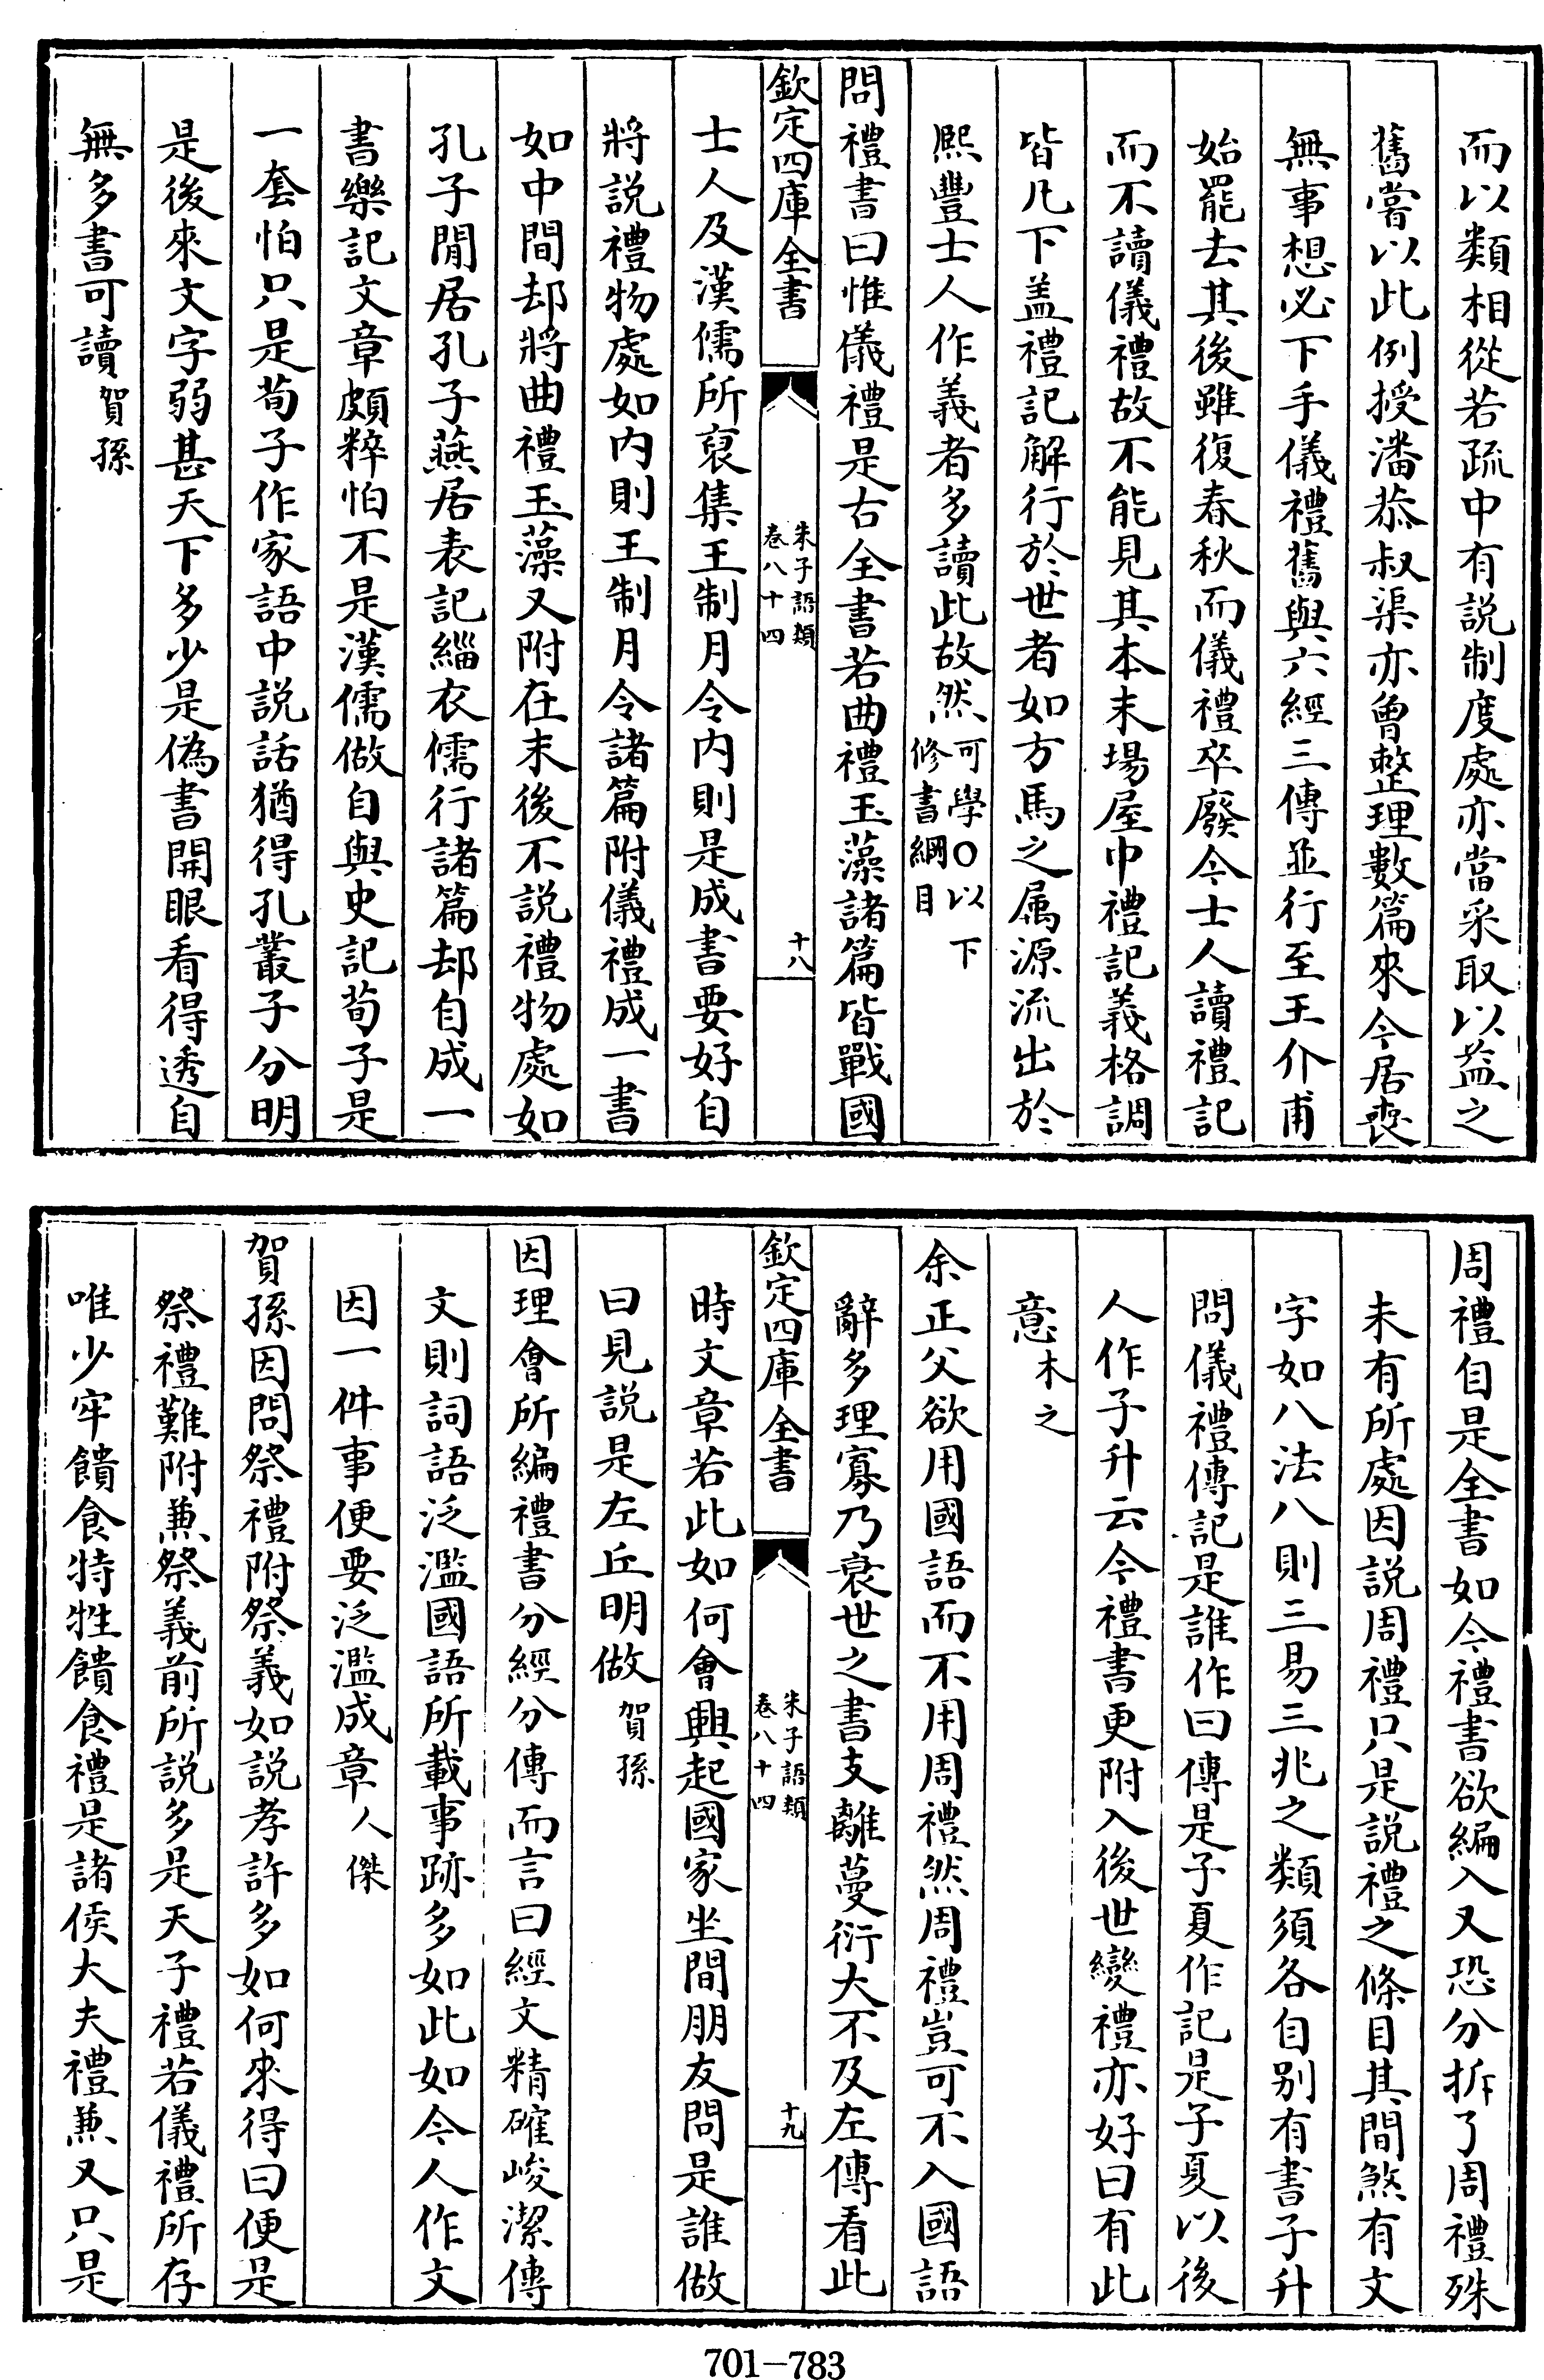 而以類相從若疏中有說制度處亦當采取以益之
舊嘗以此例授潘恭叔渠亦曾整理數篇來今居喪
無事想必下手儀禮舊與六經三傳並行至王介甫
始罷去其後雖復春秋而儀禮卒廢今士人讀禮記
而不讀儀禮故不能見其本末場屋中禮記義格調
皆凡下盖禮記解行於世者如方馬之属源流出於
熙豐士人作義者多讀此故然可學〇以下修書綱目
問禮書曰惟儀禮是古全書若曲禮玉藻諸篇皆戰國
欽定四庫全書
朱子語類
卷八十四
十八
士人及漢儒所裒集王制月令内則是成書要好自
將說禮物處如内則王制月令諸篇附儀禮成一書
如中間却將曲禮玉藻又附在末後不說禮物處如
孔子閒居孔子燕居表記緇衣儒行諸篇却自成一
書樂記文章頗粹怕不是漢儒做自與史記荀子是
一套怕只是荀子作家語中說話猶得孔叢子分明
是後來文字弱甚天下多少是偽書開眼看得透自
無多書可讀賀孫
周禮自是全書如今禮書欲編入又恐分拆了周禮殊
未有所處因說周禮只是說禮之條目其間煞有文
字如八法八則三易三兆之類須各自别有書子升
問儀禮傳記是誰作曰傳是子夏作記是子夏以後
人作子升云今禮書更附入後世變禮亦好曰有此
意木之
余正父欲用國語而不用周禮然周禮豈可不入國語
辭多理寡乃衰世之書支離蔓衍大不及左傳看此
欽定四庫全書
朱子語類
卷八十四
十九
時文章若此如何會興起國家坐間朋友問是誰做
曰見說是左丘明做賀孫
因理會所編禮書分經分傳而言曰經文精確峻潔傳
文則詞語泛濫國語所載事跡多如此如今人作文
因一件事便要泛濫成章人傑
賀孫因問祭禮附祭義如說孝許多如何來得曰便是
祭禮難附兼祭義前所說多是天子禮若儀禮所存
唯少牢饋食特牲饋食禮是諸侯大夫禮兼又只是
701-783